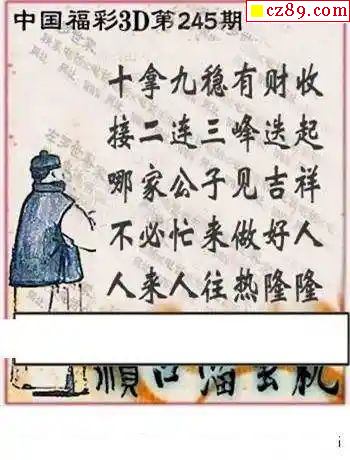 cz89.com
中国福彩3D第245期
十拿九稳有财收
接二连三峰迭起
哪家公子见吉祥
不必忙来做好人
人来人往热隆隆
i